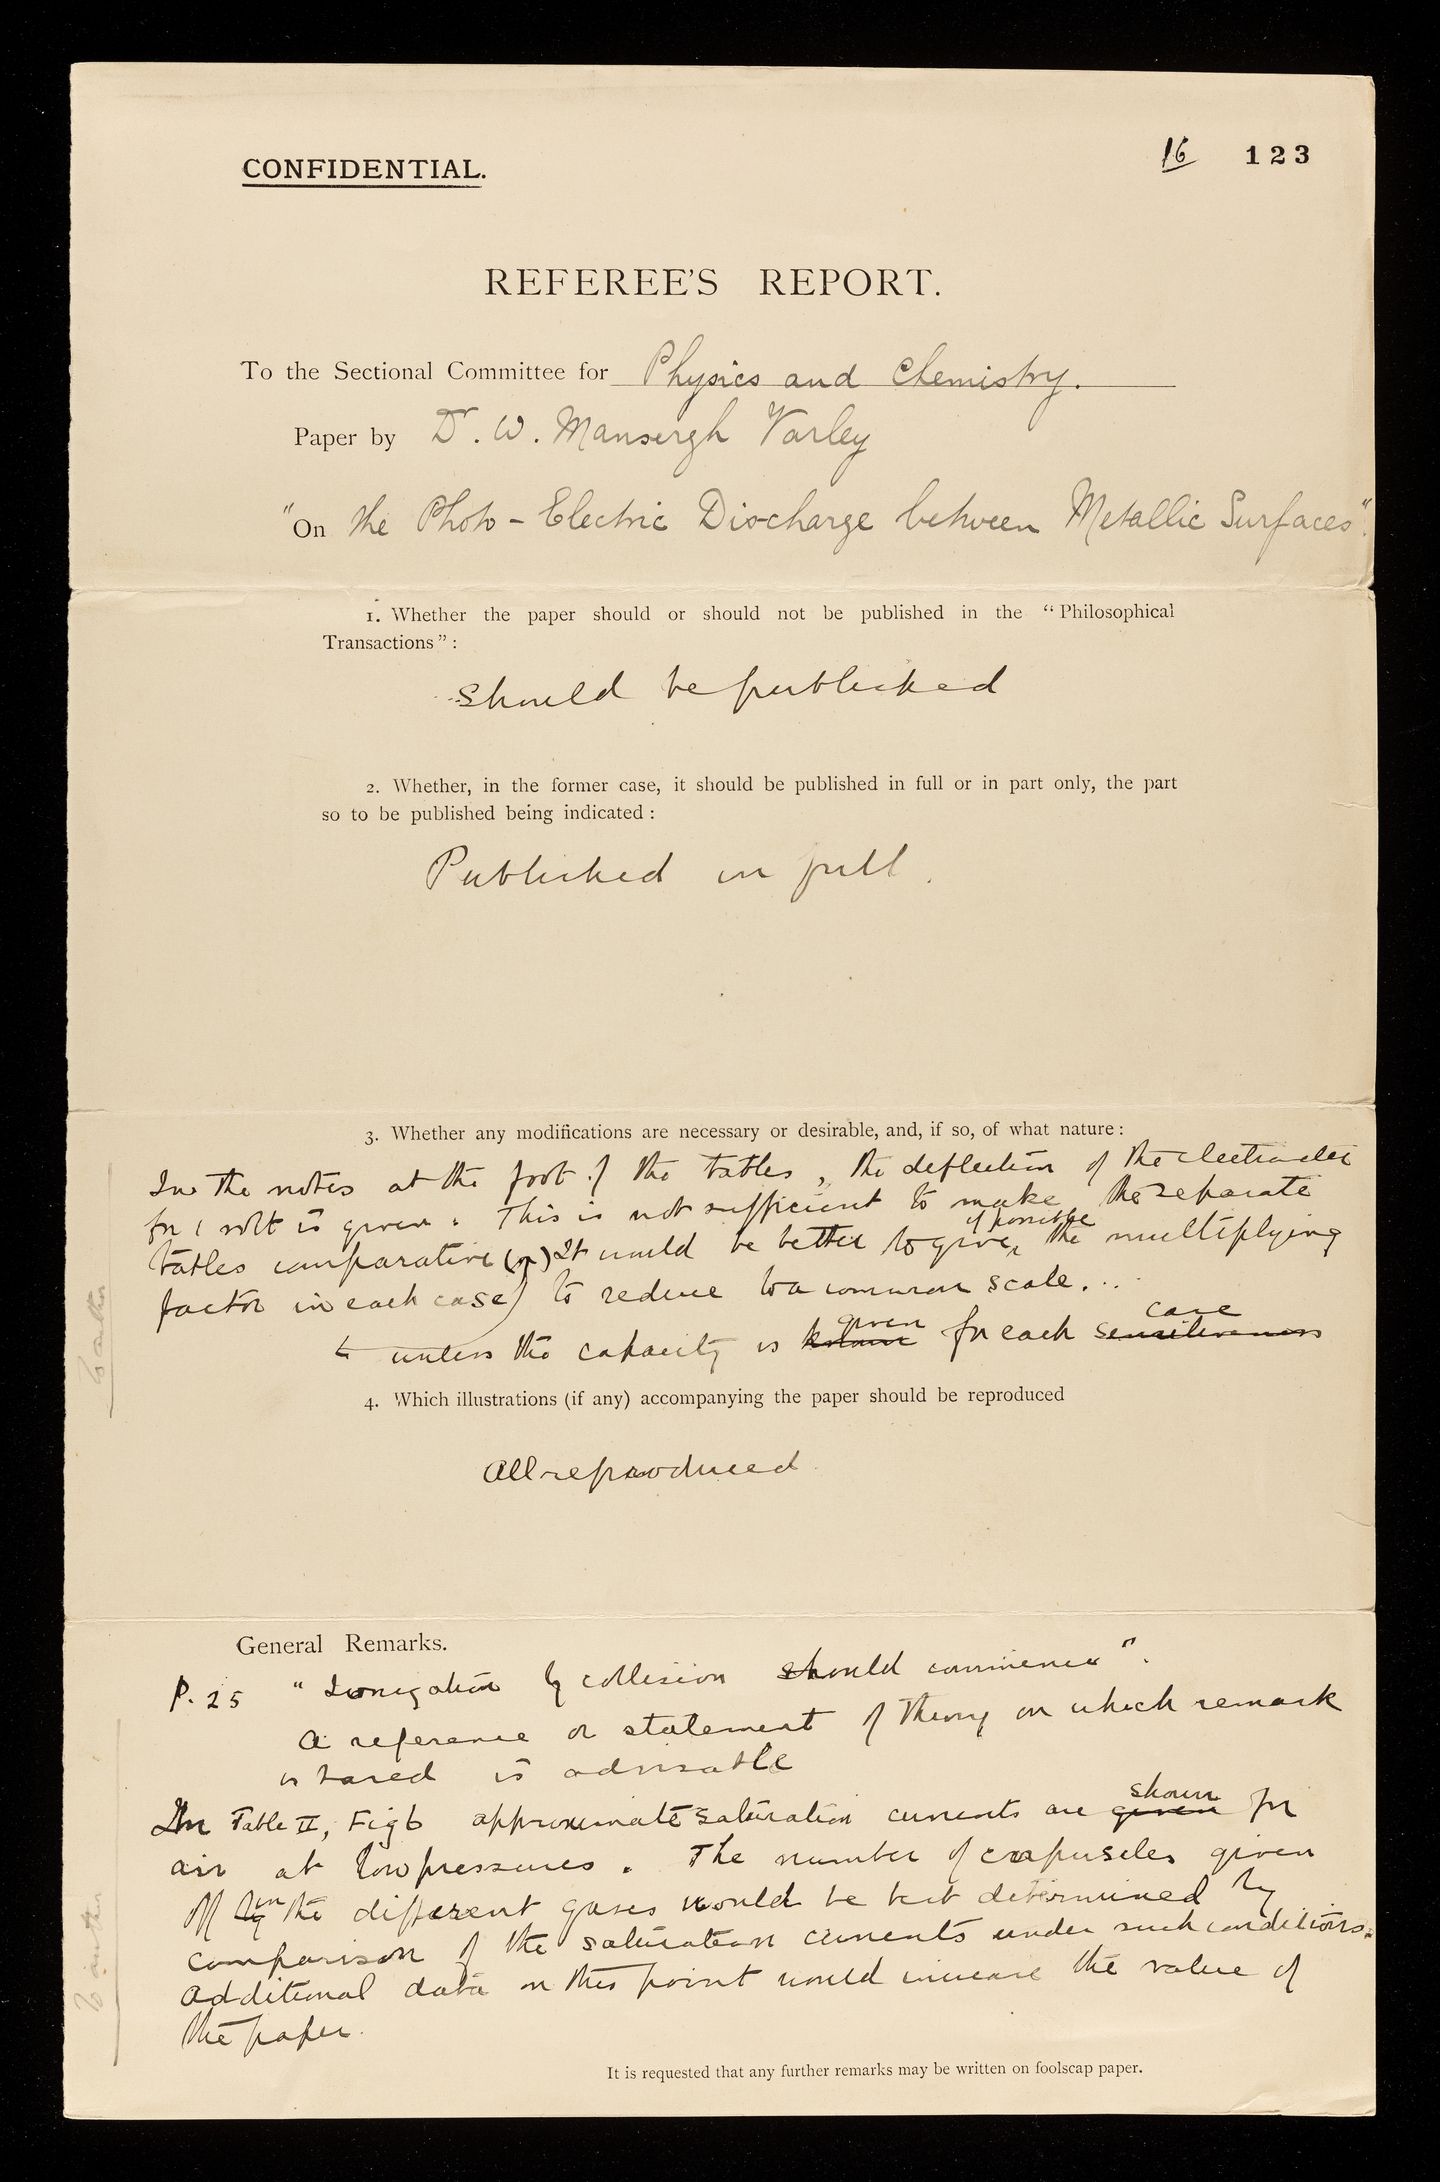 CONFIDENTIAL.
16 123
REFEREE'S REPORT.
To the Sectional Committee for Physics and Chemistry.
Paper by Dr. W. Mansergh Varley
"On the Photo-Electric Discharge between Metallic Surfaces".
1. Whether the paper should or should not be published in the "Philosophical
Transactions":
Should be published
2. Whether, in the former case, it should be published in full or in part only, the part
so to be published being indicated:
Published in full.
3. Whether any modifications are necessary or desirable, and, if so, of what nature:
In the notes at the foot of the tables, the deflection of the electrometer
for 1 volt is given. This is not sufficient to make the separate
if possible
tables comparative It would be better to give the multiplying
factor in each case) to reduce to a common scale...
given case
unless the capacity is known for each sensitiveness
4. Which illustrations (if any) accompanying the paper should be reproduced
All reproduced
To author
General Remarks.
P. 25 "Ionization by collision should commence".
A reference or statement of theory on which remark
is based is advisable
shown
In Table II, Fig 6 approximate saturation currents are given for
air at low pressures. The number of corpuscles given
off in the different gases would be best determined by
comparison of the saturation currents under such conditions.
Additional data on this point would increase the value of
the paper.
To author
It is requested that any further remarks may be written on foolscap paper.